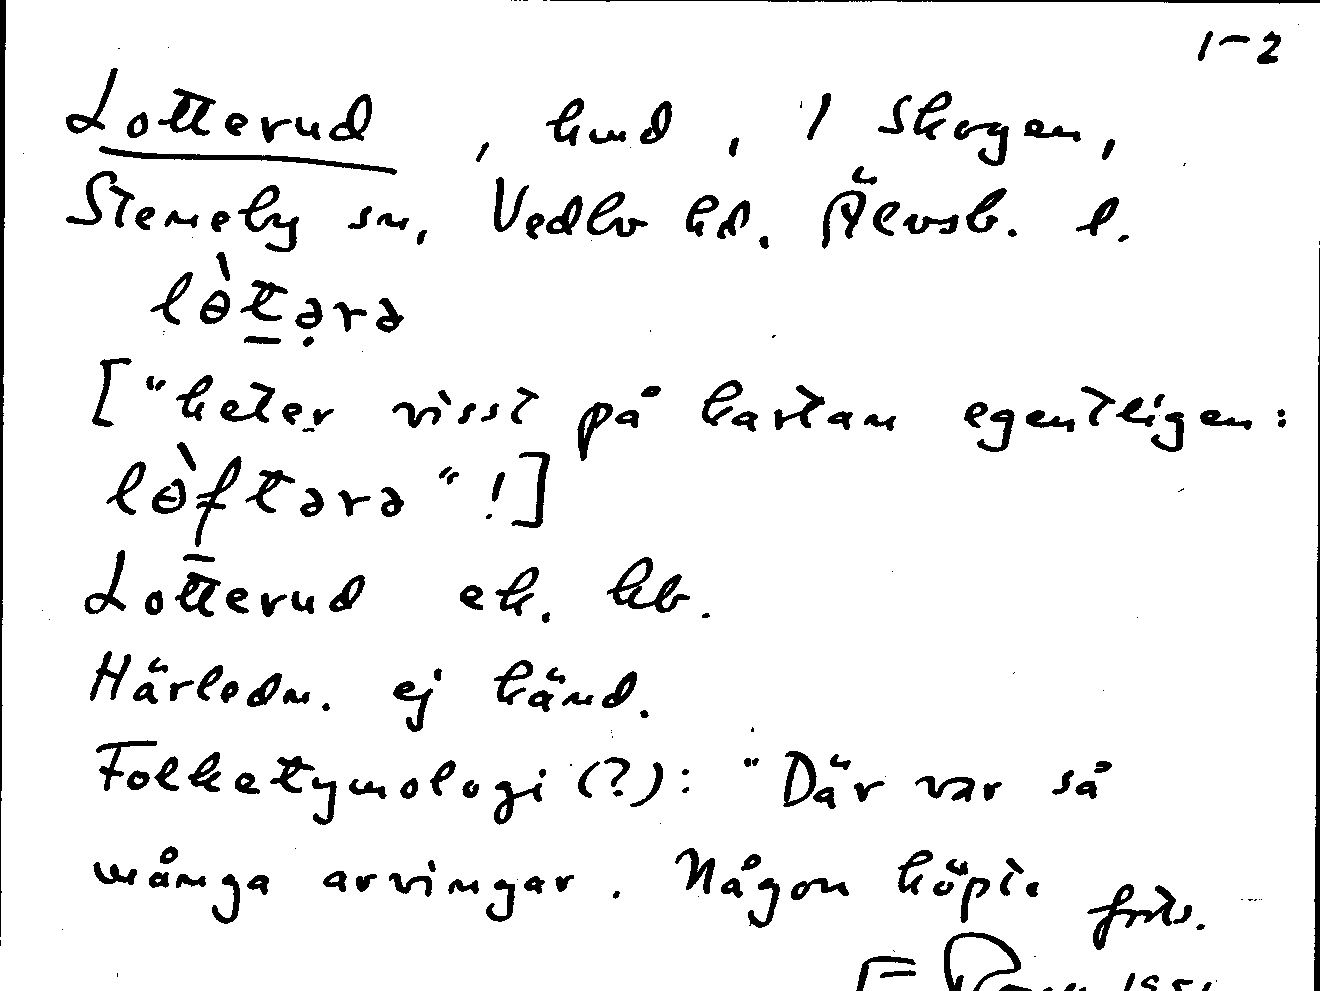 1-2
Lotterud, hmd, 1 Skogen,
Steneby sn, Vedbo hd. Älvsb. l.
lòtərə
["heter visst på kartan egentligen:
lòftərə"!]
Lotterud ek. kb.
Härledn. ej känd.
Folketymologi (?): "Där var så
många arvingar. Någon köpte
forts.